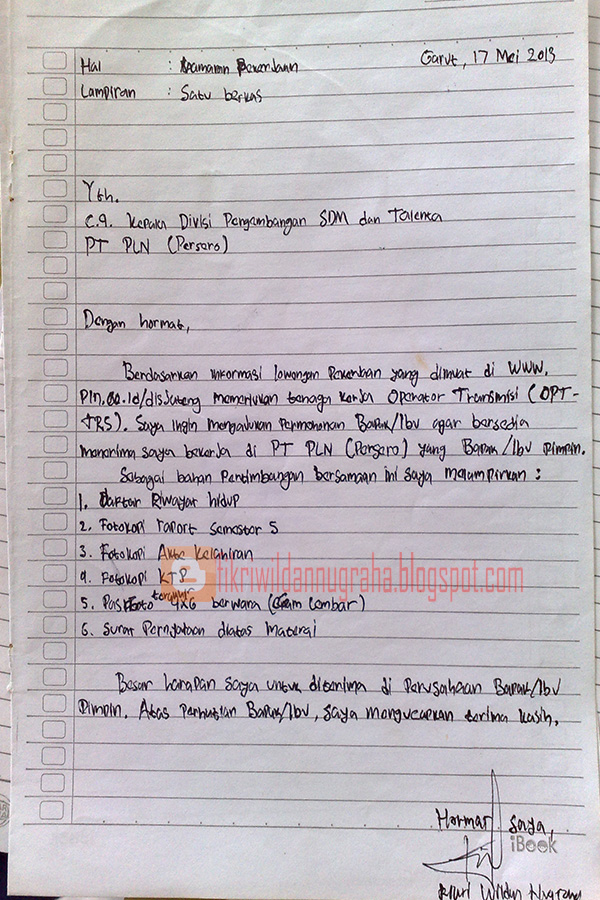 Hal : Lamaran Pekerjaan
Garut, 17 Mei 2013
Lampiran : Satu berkas
Yth.
c.q. Kepala Divisi Pengembangan SDM dan Talenta
PT PLN (Persero)
Dengan hormat,
Berdasarkan informasi lowongan Pekerjaan yang dimuat di WWW.
Pln.co.id/disjateng memerlukan tenaga kerja Operator Transmisi (OPT-
TRS). Saya ingin mengajukan Permohonan Bapak/Ibu agar bersedia
menerima saya bekerja di PT PLN (Persero) yang Bapak/Ibu Pimpin.
Sebagai bahan Pertimbangan bersamaan ini saya melampirkan :
1. Daftar Riwayat hidup
2. Fotokopi raport semester 5
3. Fotokopi Akte Kelahiran
4. Fotokopi KTP
fikriwildannugraha.blogspot.com
5. Pas Foto terakhir 4x6 berwarna (Enam Lembar)
6. Surat Pernyataan diatas Materai
Besar harapan saya untuk diterima di Perusahaan Bapak/Ibu
Pimpin. Atas Perhatian Bapak/Ibu, saya mengucapkan terima kasih.
Hormat saya,
iBook
Fikri Wildan Nugraha